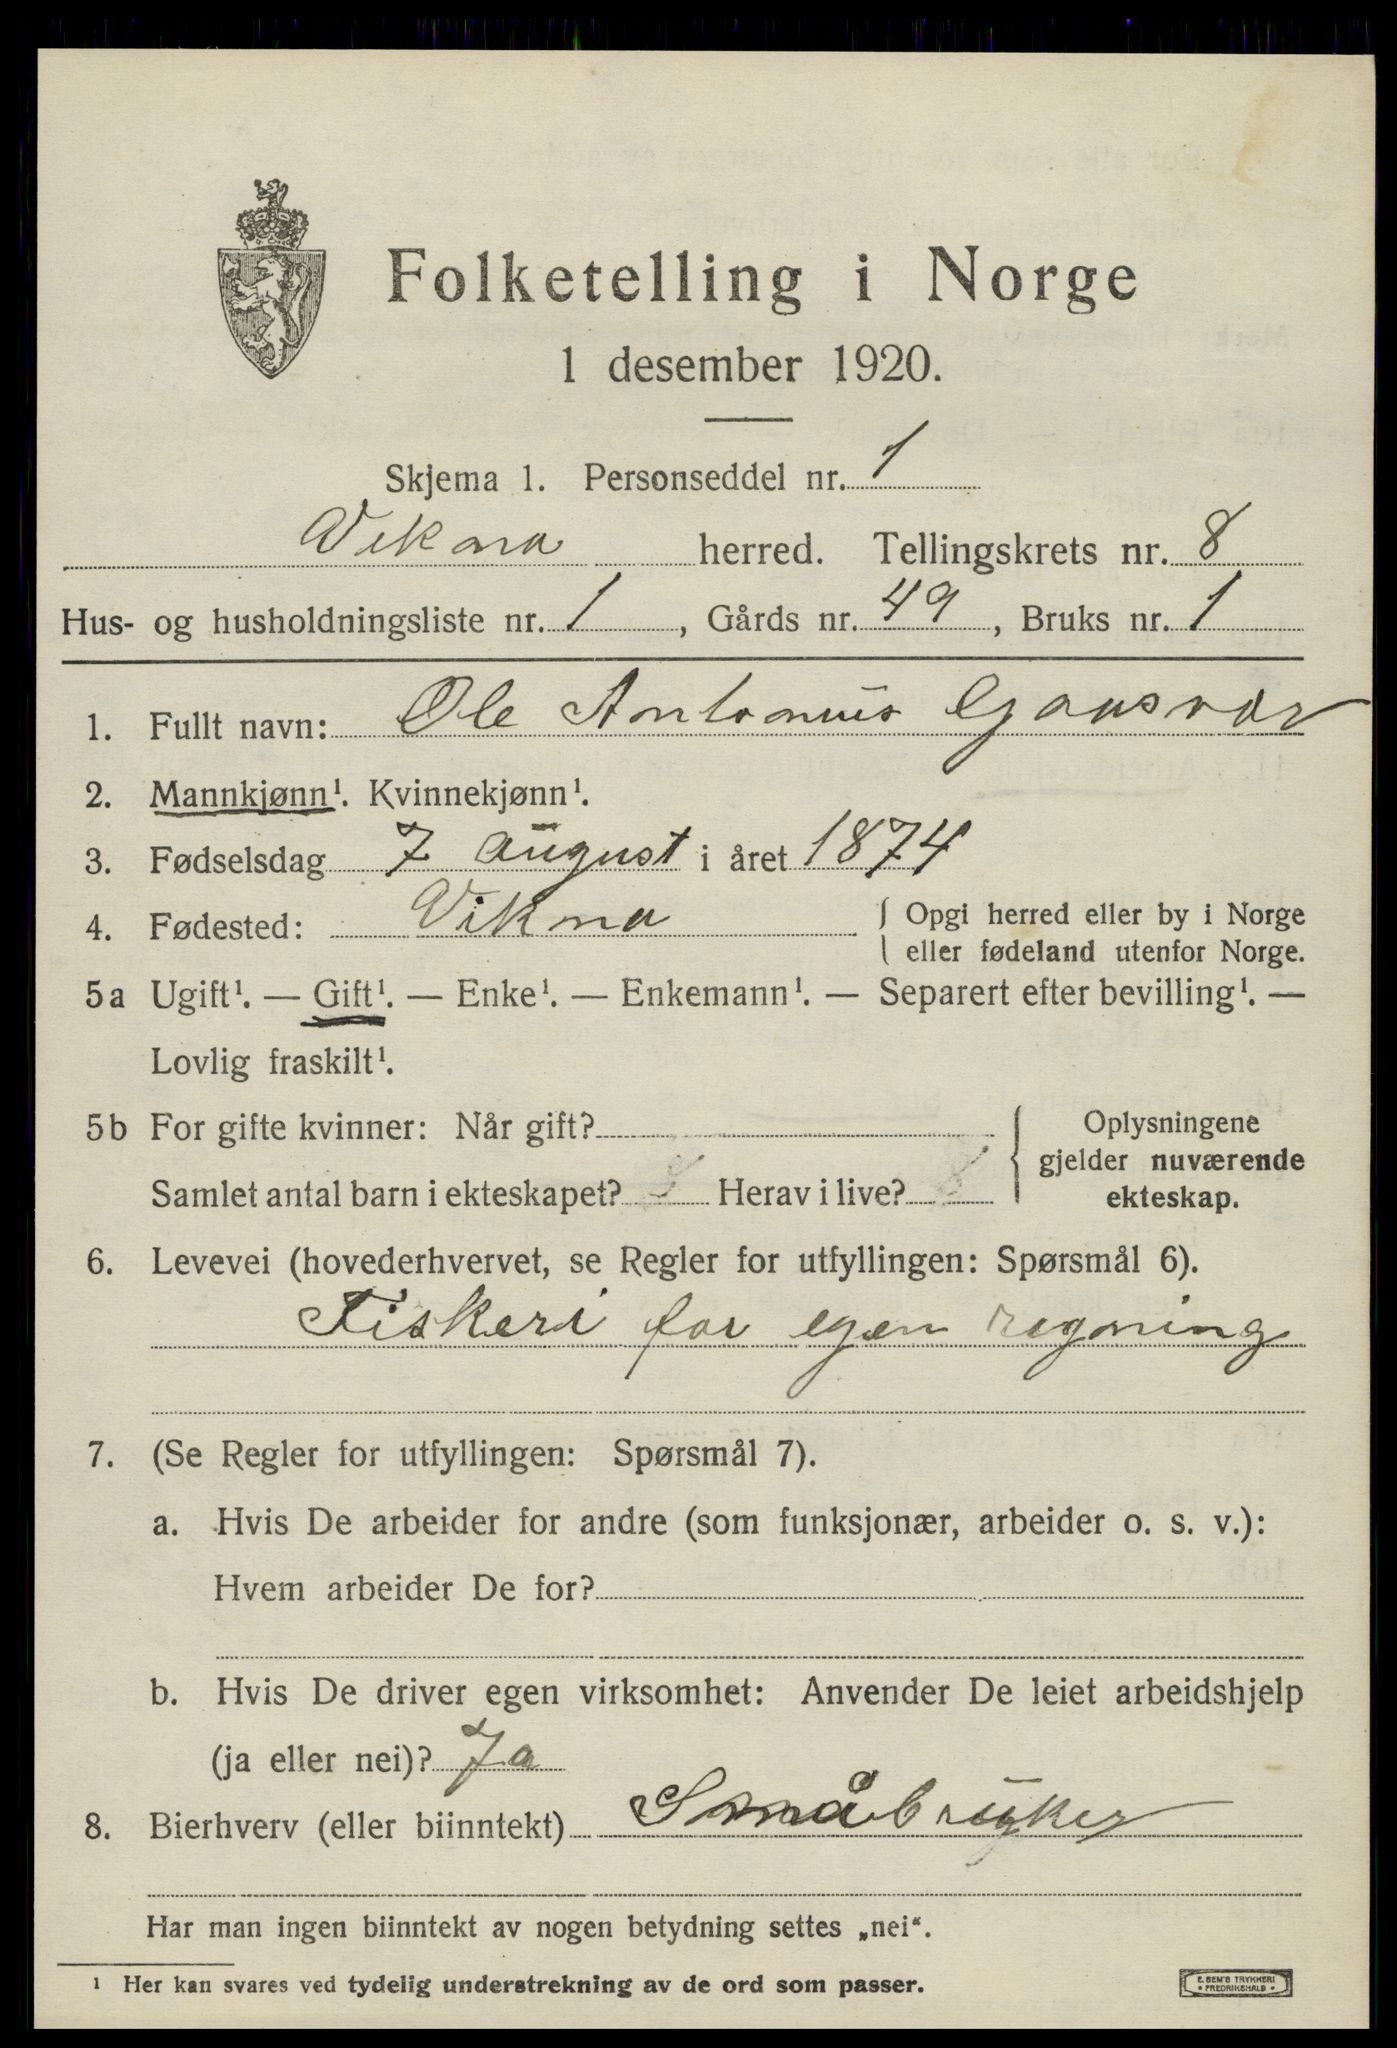 Folketelling i Norge
1 desember 1920.
Skjema 1. Personseddel nr. 1
Vikna herred. Tellingskrets nr. 8
Hus- og husholdningsliste nr. 1, Gårds nr. 49, Bruks nr. 1
1. Fullt navn: Ole Antonius Gaasvær
2. Mannkjønn¹. Kvinnekjønn¹.
3. Fødselsdag 7 august i året 1874
4. Fødested: Vikna { Opgi herred eller by i Norge
eller fødeland utenfor Norge.
5a Ugift¹. — Gift¹. — Enke¹. — Enkemann¹. — Separert efter bevilling¹. —
Lovlig fraskilt¹.
5b For gifte kvinner: Når gift?
Samlet antal barn i ekteskapet? Herav i live?
Oplysningene
gjelder nuværende
ekteskap.
6. Levevei (hovederhvervet, se Regler for utfyllingen: Spørsmål 6).
Fiskeri for egen regning
7. (Se Regler for utfyllingen: Spørsmål 7).
a. Hvis De arbeider for andre (som funksjonær, arbeider o. s. v.):
Hvem arbeider De for?
b. Hvis De driver egen virksomhet: Anvender De leiet arbeidshjelp
(ja eller nei)? Ja
8. Bierhverv (eller biinntekt) Småbruker
Har man ingen biinntekt av nogen betydning settes „nei“.
¹ Her kan svares ved tydelig understrekning av de ord som passer.
E. SEM'S TRYKKERI
• FREDRIKSHALD •